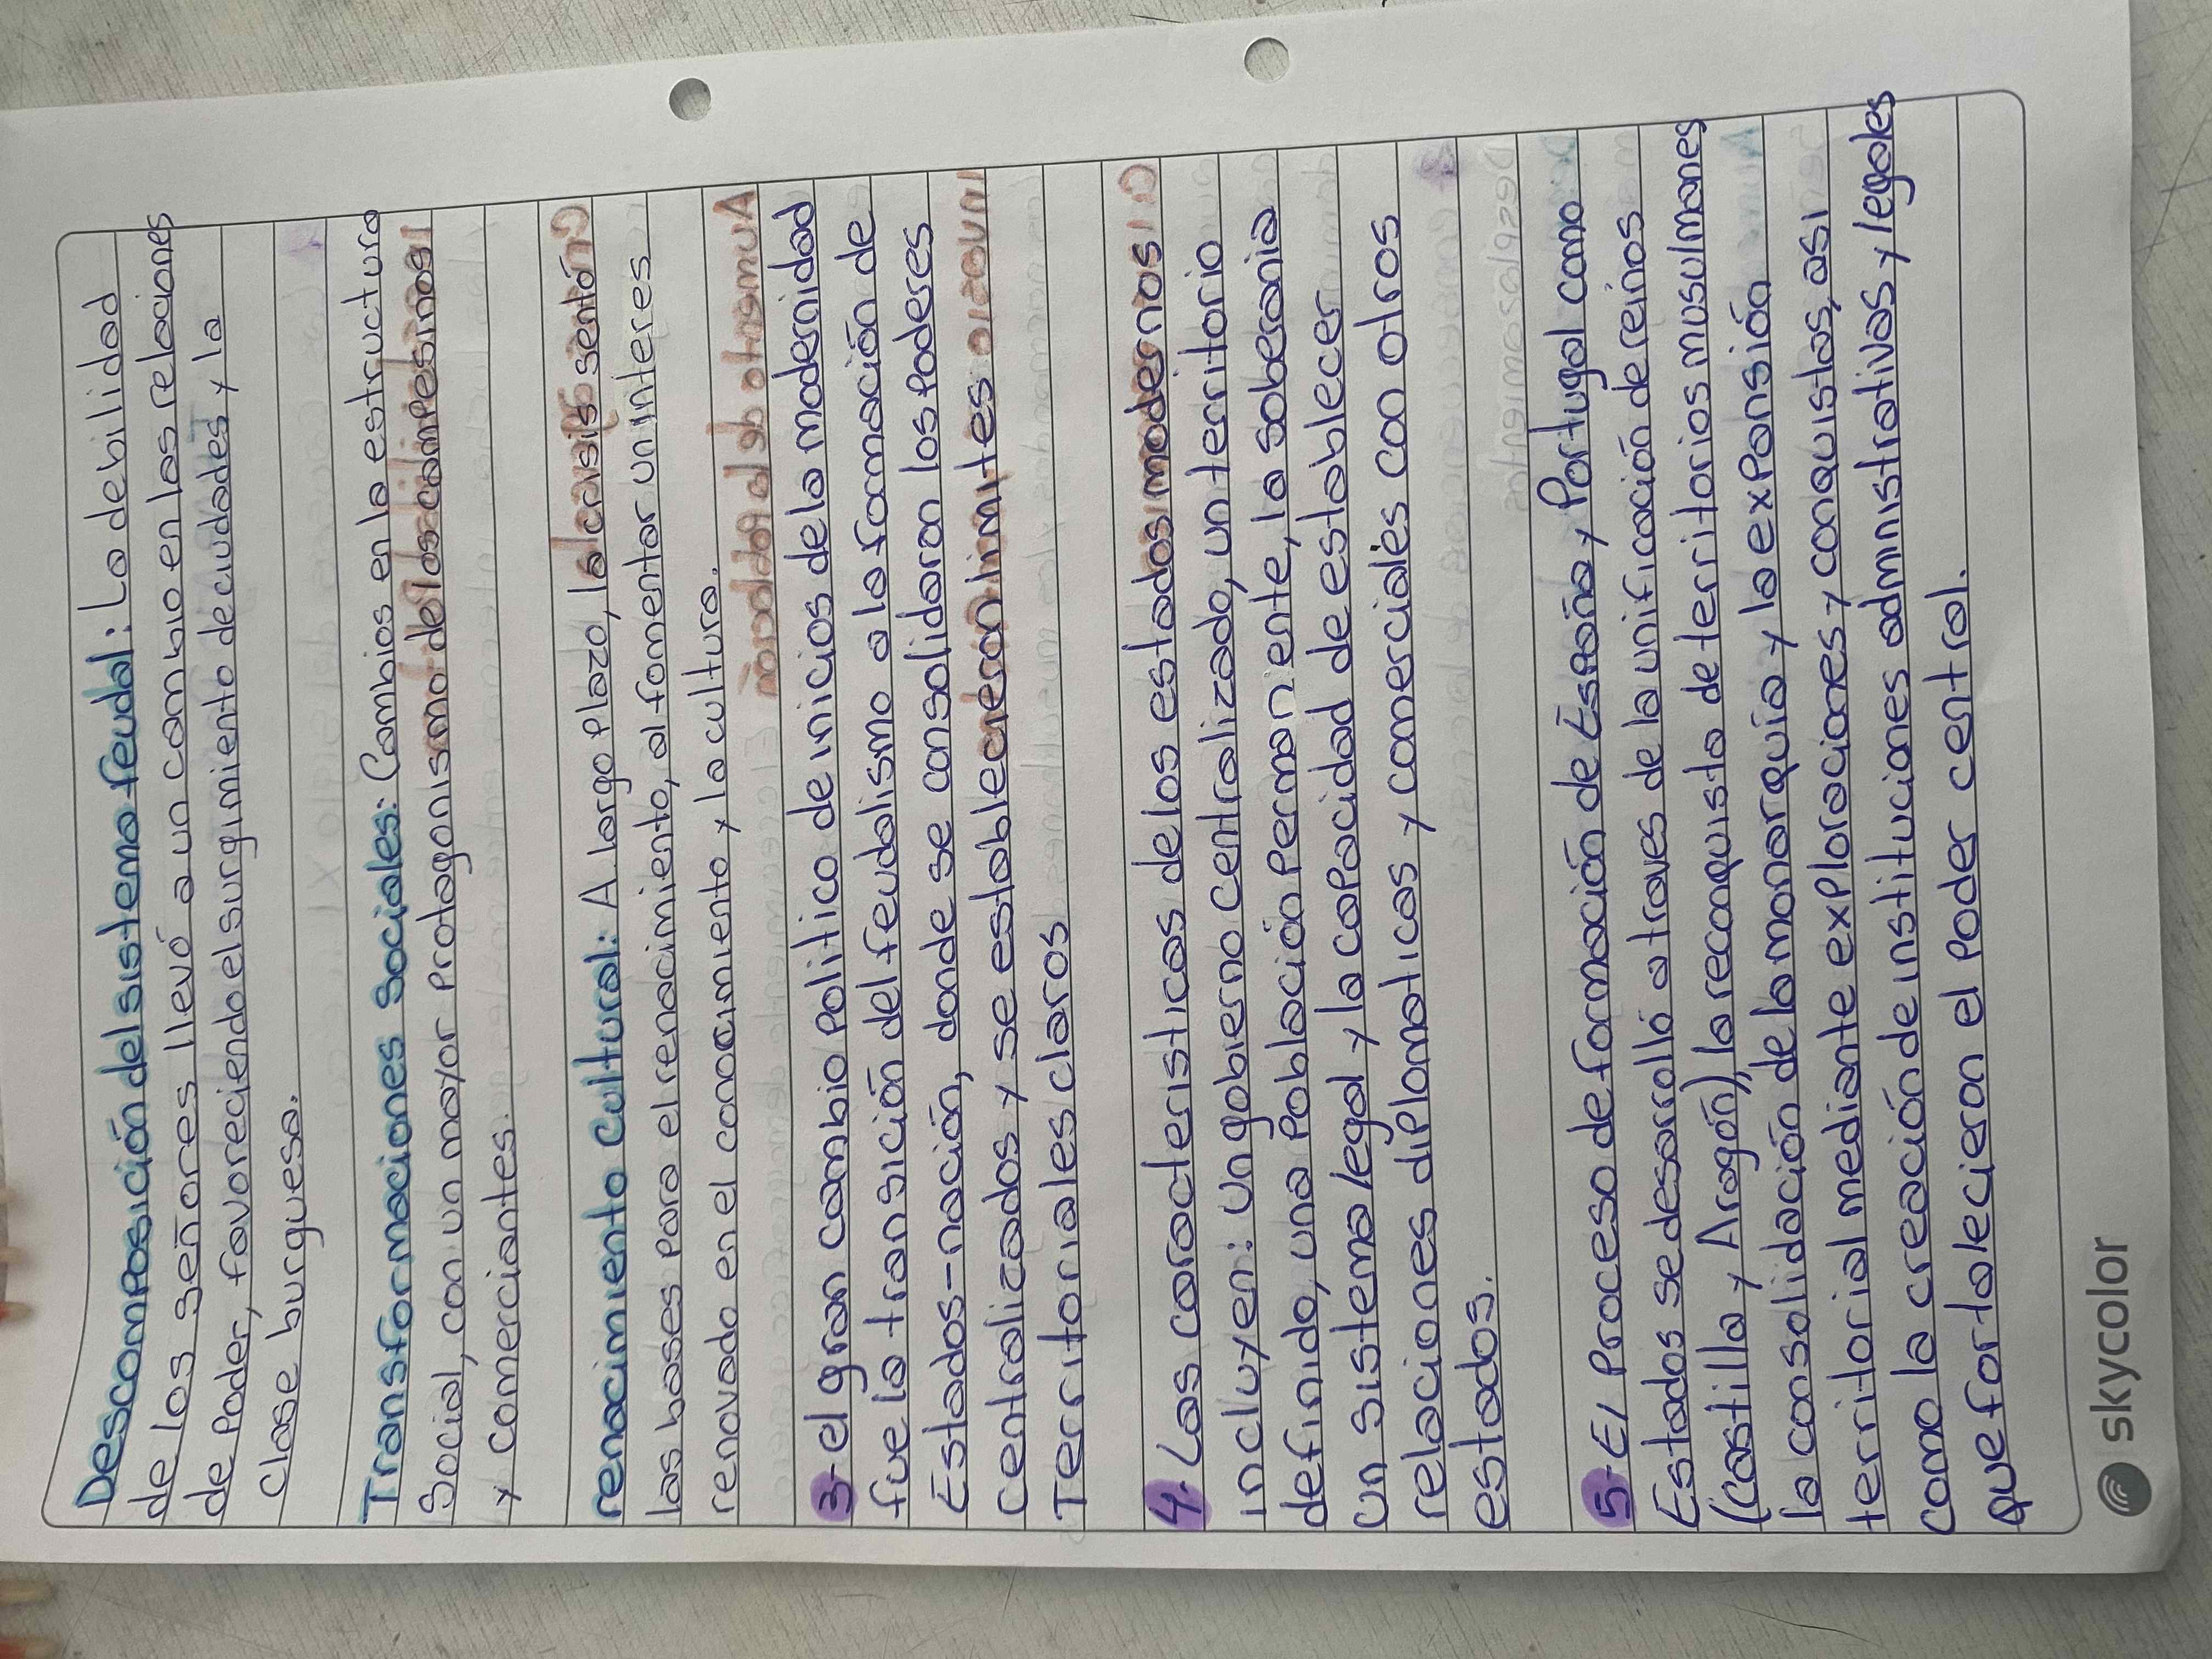 Descomposición del sistema feudal: La debilidad
de los señores llevó a un cambio en las relaciones
de Poder, favoreciendo el surgimiento de ciudades y la
clase burguesa.
Transformaciones Sociales: Cambios en la estructura
Social, con un mayor Protagonismo de los campesinos
y comerciantes.
renacimiento cultural: A largo Plazo, la crisis sentó
las bases Para el renacimiento, al fomentar un interes
renovado en el conocimiento y la cultura.
3- el gran cambio Politico de inicios de la modernidad
fue la transición del feudalismo a la formación de
Estados-nación, donde se consolidaron los Poderes
Centralizados y se establecieron limites
Territoriales claros
4- Las caracteristicas de los estados modernos
incluyen: un gobierno centralizado, un territorio
definido, una Población Permanente, la soberania
un sistema legal y la capacidad de establecer
relaciones diplomaticas y comerciales con otros
estados.
5- El Proceso de formación de España y Portugal como
Estados se desarrolló a traves de la unificación de reinos
(Castilla y Aragón), la reconquista de territorios musulmanes
la consolidación de la monarquía y la expansión
territorial mediante exploraciones y conquistas, asi
como la creación de instituciones administrativas y legales
que fortalecieron el Poder central.
skycolor